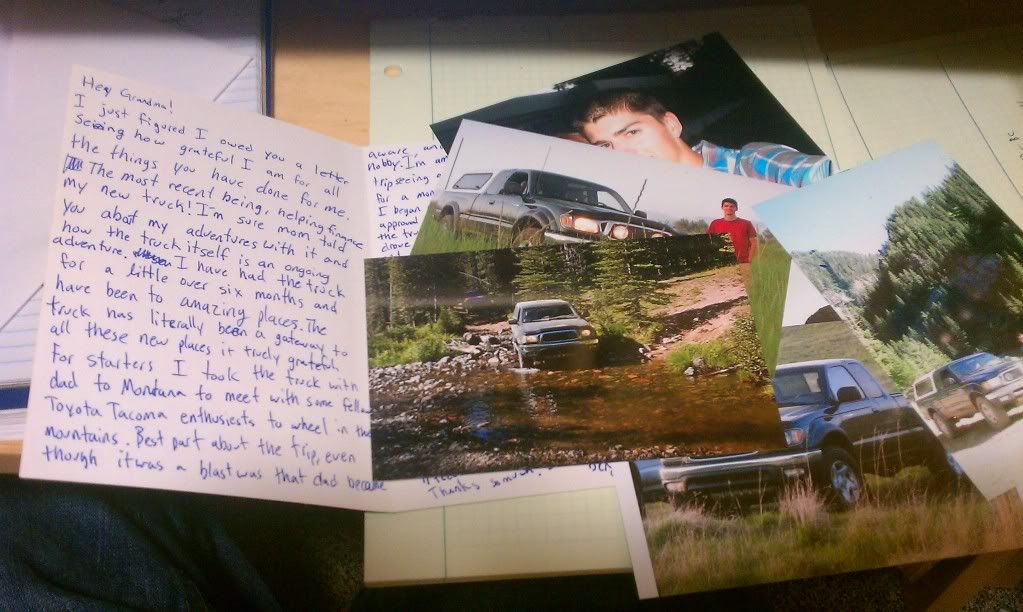 Hey Grandma!
I just figured I owed you a letter
Seeing how grateful I am for all
the things you have done for me.
The most recent being, helping finance
my new truck! I'm sure mom told
you about my adventures with it and
how the truck itself is an ongoing
adventure. I have had the truck
for a little over six months and
have been to amazing places. The
truck has literally been a gateway to
all these new places i truely grateful
For starters I took the truck with
dad to Montana to meet with some fellow
Toyota Tacoma enthusiasts to wheel in the
mountains. Best part about the trip, even
though it was a blast was that dad became
aware, and
hobby. I'm am
trip seeing
for a mon
I began
approval
the tru
drove
Thanks so much!